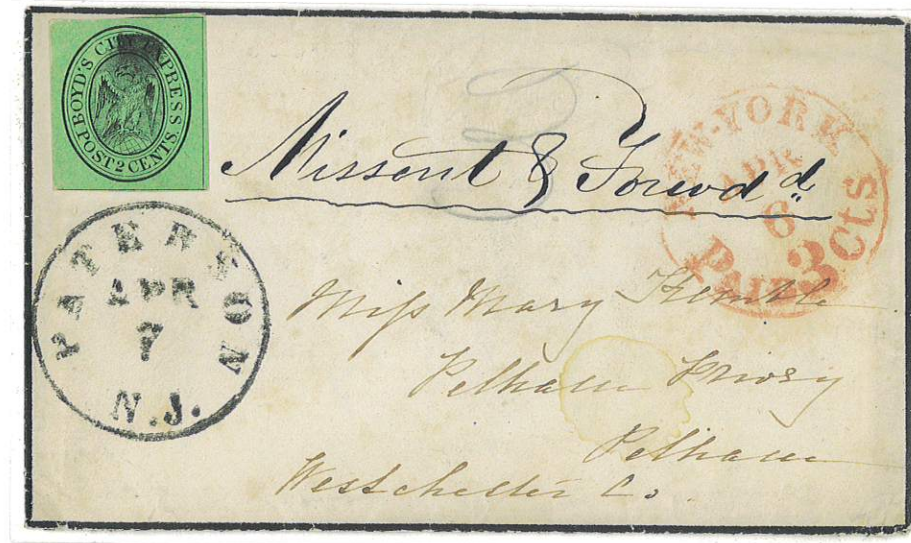 BOYD'S CITY EXPRESS
POST 2 CENTS
Missent & Forwd d
NEW-YORK
APR
6
PAID 3 Cts
PATERSON
APR
7
N.J.
Miss Mary Kemble
Pelham Priory
Pelham
Westchester Co.